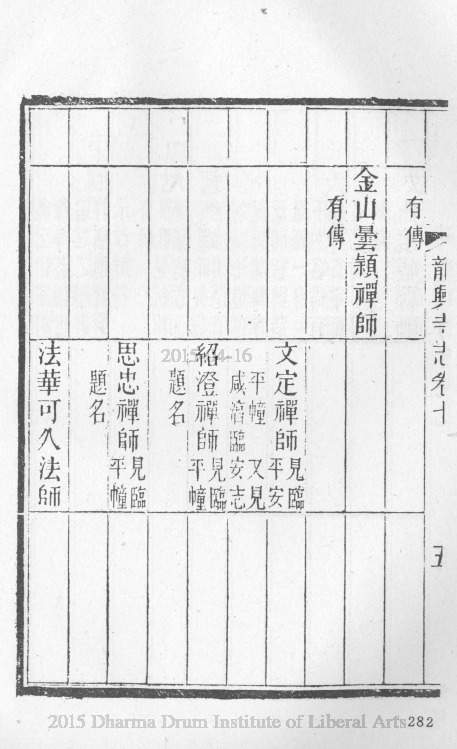 龍興寺志卷十
五
有傳
金山曇穎禪師
有傳
文定禪師見臨
平安
平幢 又見
咸淳臨安志
紹澄禪師見臨
平幢
題名
思忠禪師見臨
平幢
題名
法華可久法師
2015 Dharma Drum Institute of Liberal Arts
282